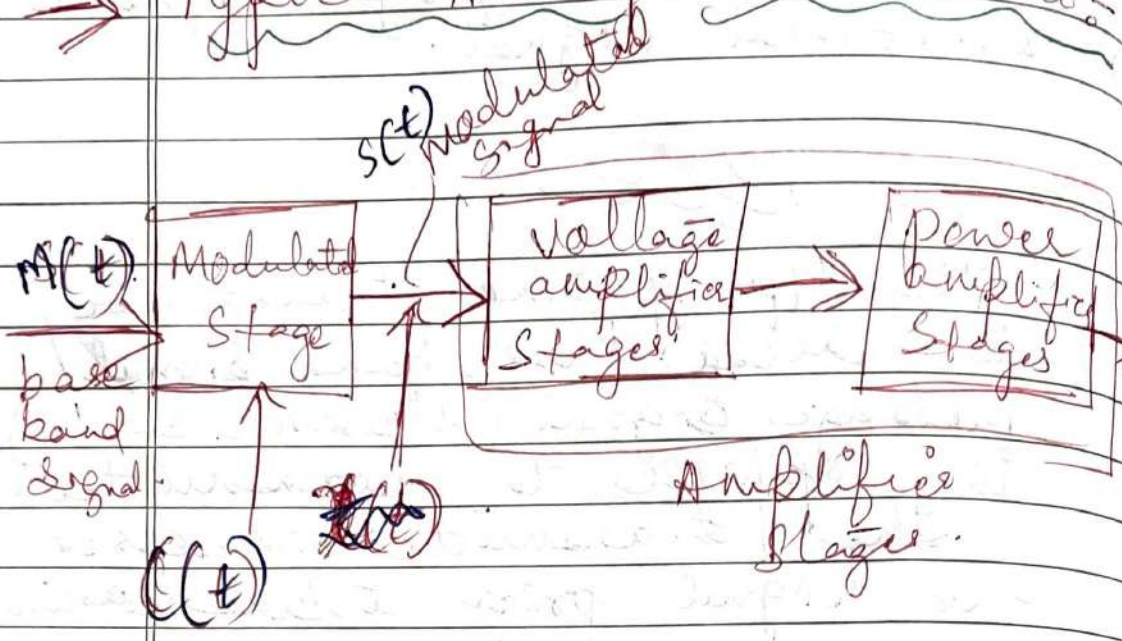 S(t) Modulated
signal
M(t)
base
band
signal
Modulated
Stage
Voltage
amplifier
Stages
Power
amplifier
Stages
C(t)
Amplifier
Stages.